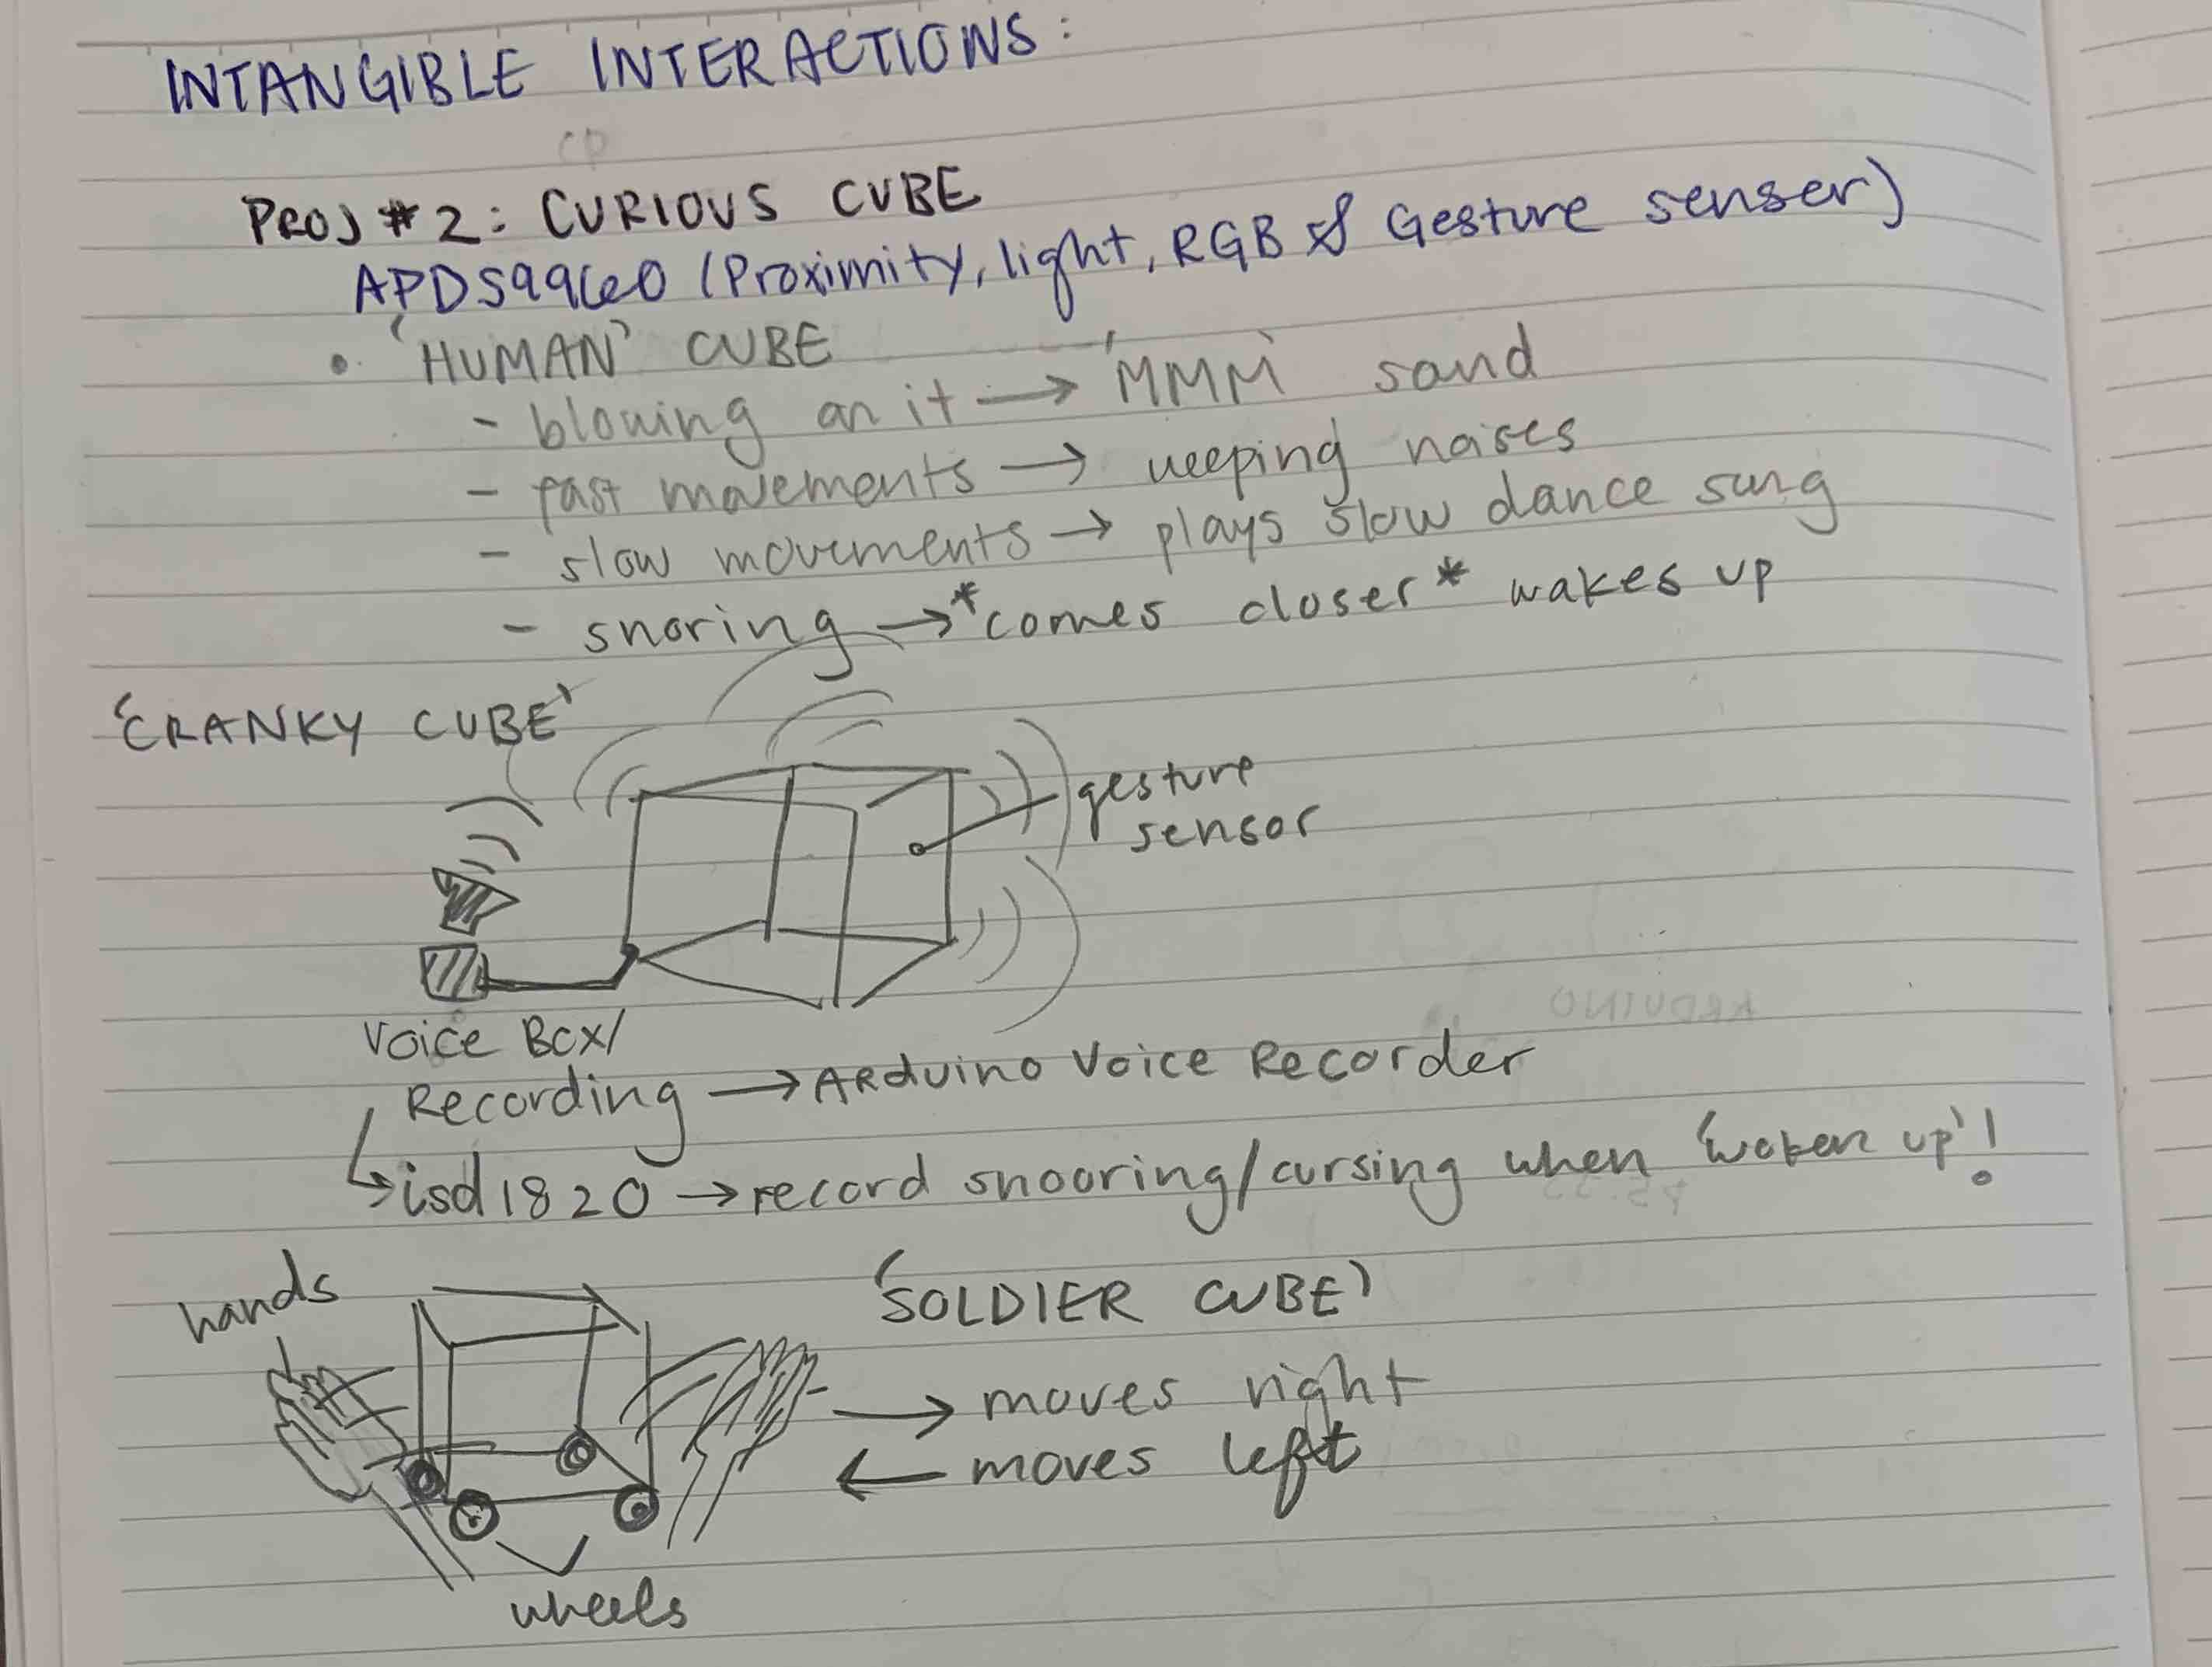 INTANGIBLE INTERACTIONS:
PROJ #2: CURIOUS CUBE
APDS9960 (Proximity, light, RGB & Gesture senser)
• 'HUMAN' CUBE
- blowing on it → 'MMM' sound
- fast movements → weeping noises
- slow movements → plays slow dance song
- snoring → *comes closer* wakes up
'CRANKY CUBE'
gesture
sensor
Voice Box/
Recording → ARduino Voice Recorder
↳ isd1820 → record snooring/cursing when 'woken up'!
hands
'SOLDIER CUBE'
→ moves right
← moves left
wheels